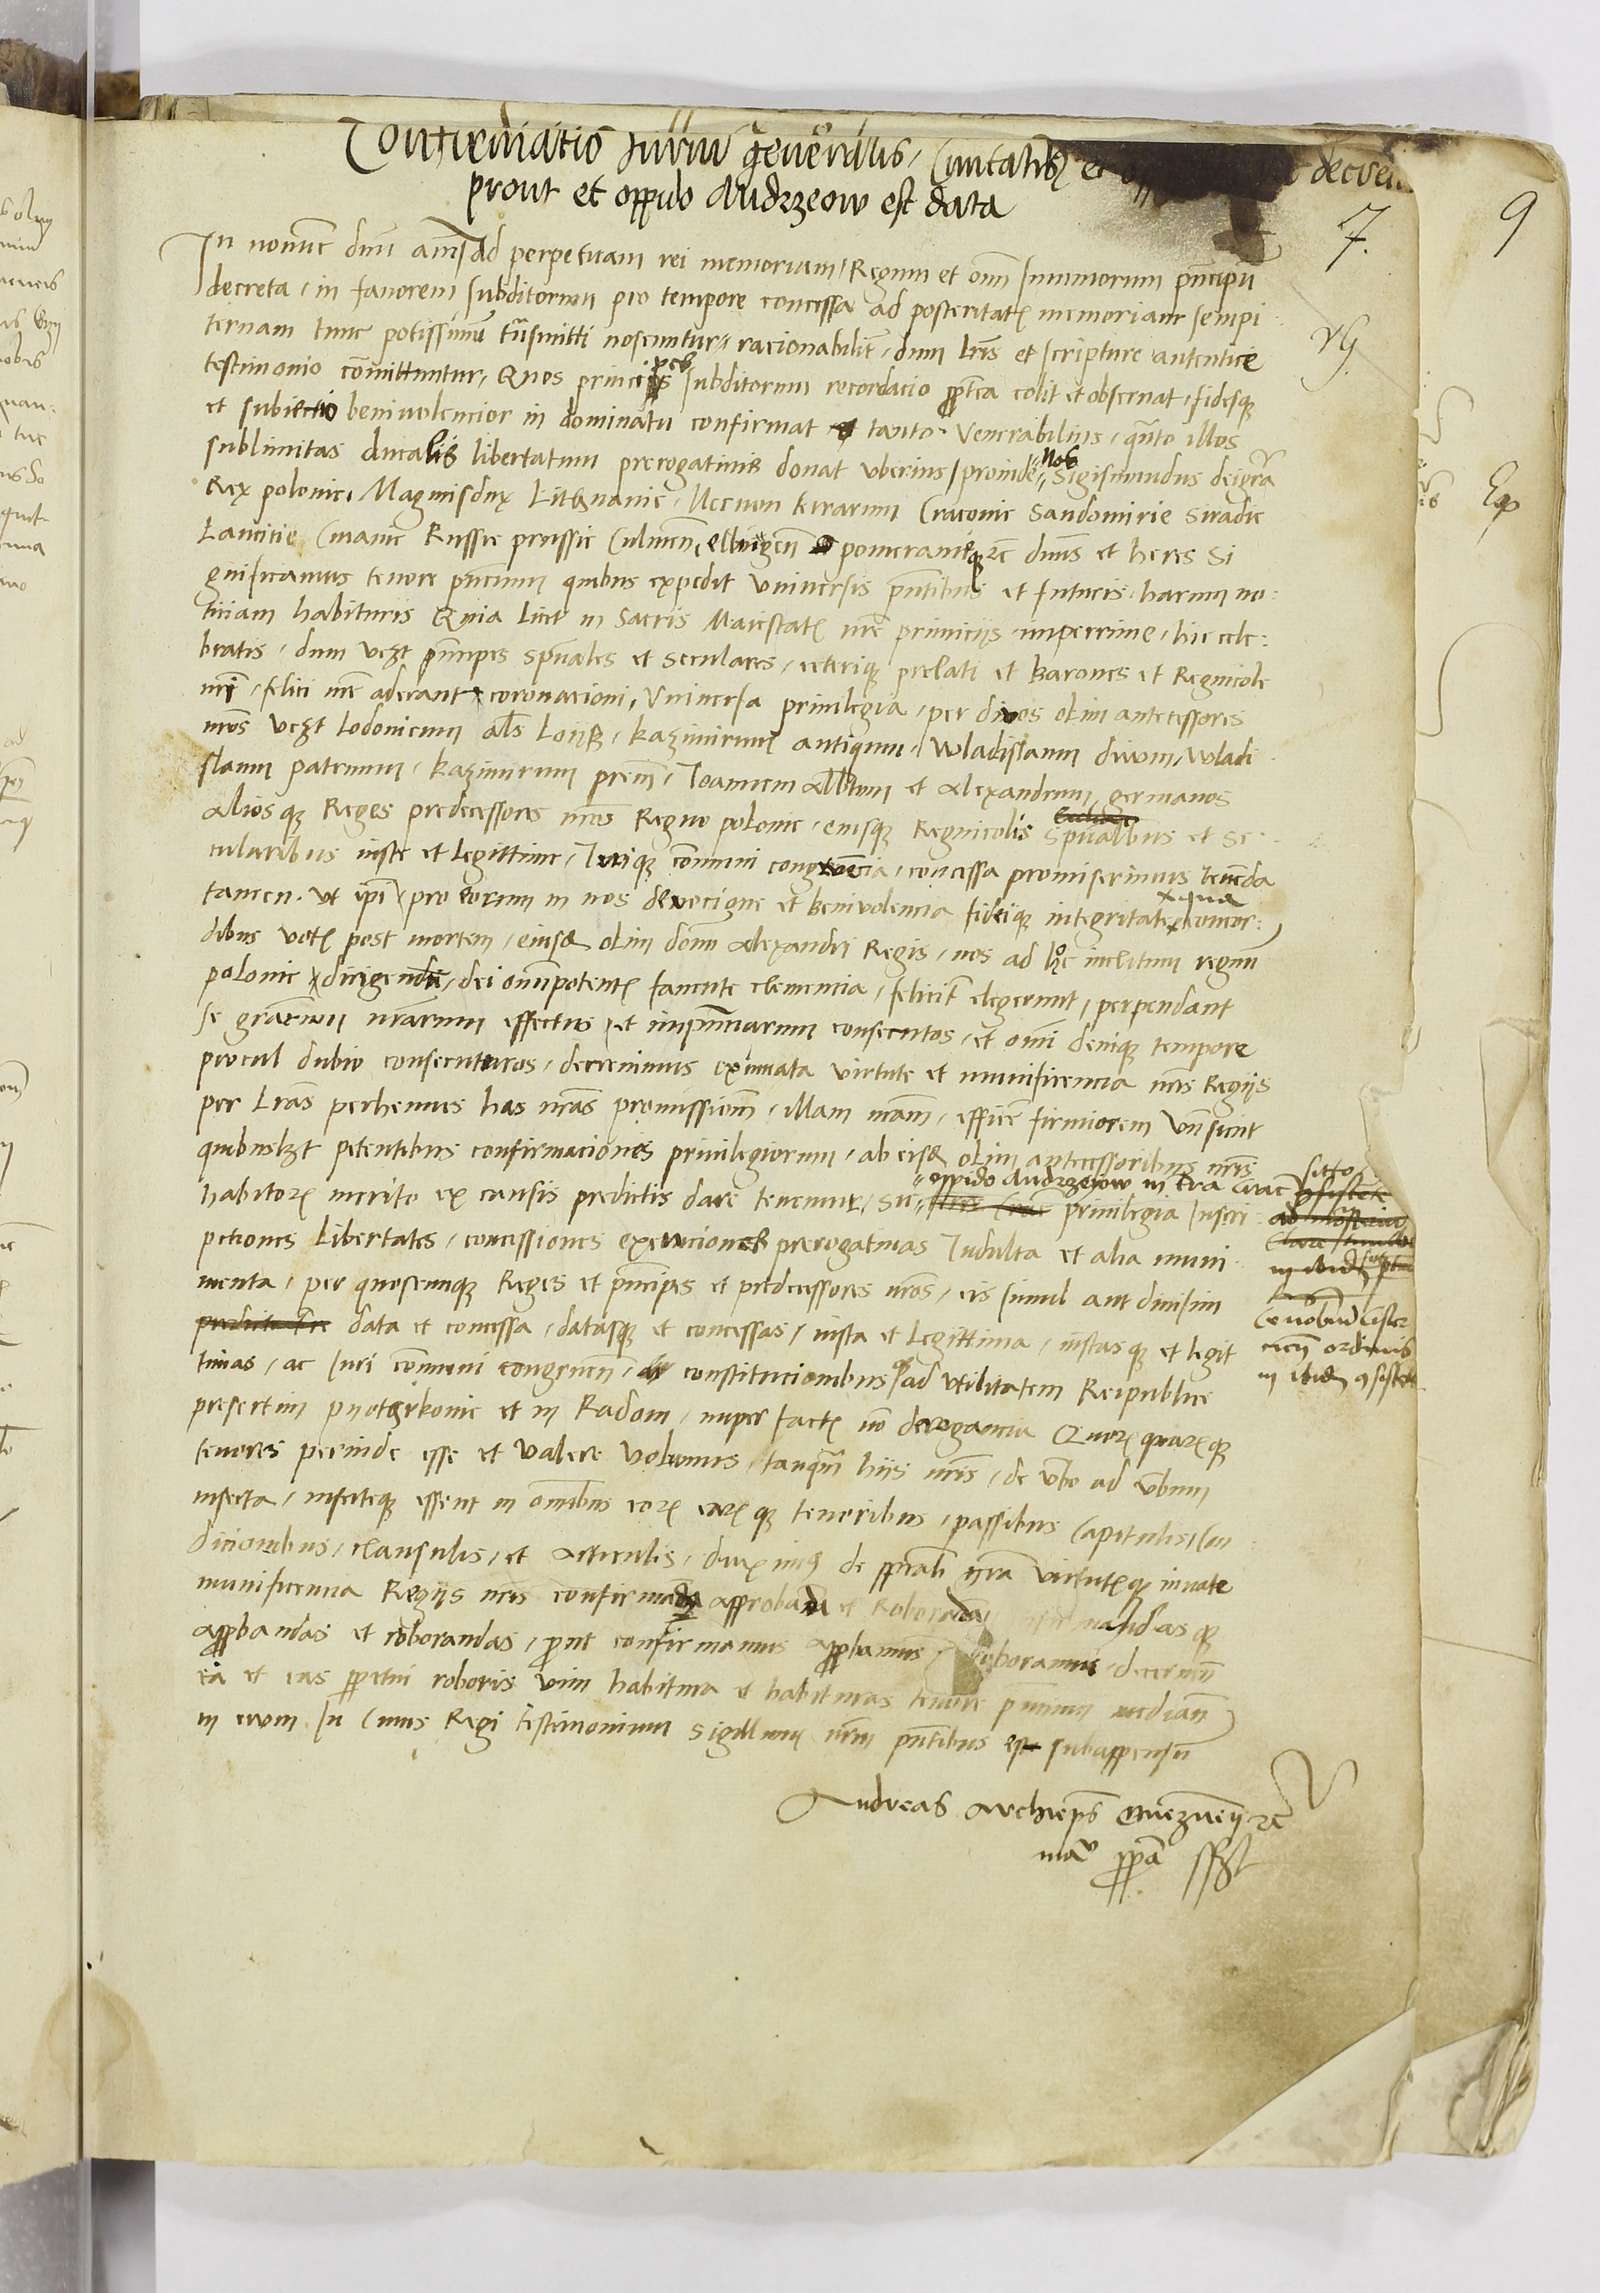 Confirmatio Iuriu generalis, Ciuitatibus et opp decreu
prout et oppido Andrzeow est data
7.
9
In nomine dni amen Ad perpetuam rei memoriam, Regum et omni summorum principu
decreta, in fauorem subditorum pro tempore concessa ad posteritatis memoriam sempi
ternam tunc potissimu trasmitti noscuntur, racionabilit, dum lris et scripture autentice
testimonio comittuntur, Quos principes subditorum recordacio propterea colit et obseruat, fidesque
et subiectio beniuolencior in dominatu confirmat tanto Venerabilius, quanto illos
sublimitas ducalis libertatum prerogatiuis donat vberius, proinde Nos Sigismundus dei gra
Rex polonie, Magnus dux Lithuanie, Necnon terrarum Cracouie Sandomirie Siradie
Lancicie, Cuiauie Russie prussie Culmen, elbingen pomeranieque etc dnus et heres Si
gnificamus tenore pncium quibus expedit vniuersis pntibus et futuris, harum no
ticiam habituris Quia licet in Sacris Maiestatis nre primicijs nuperrime, hic cele
bratis, dum vczt principes spuales et seculares, ceterique prelati et Barones et Regnicole
nri, felici nre aderant coronacioni, Vniuersa priuilegia, per diuos olim antecessores
nros vczt Lodouicum als Loijs, Kazimirum antiquum, Wladislaum diuum, Wladi
slaum Patruum, Kazimirum prem, Ioannem Albtum et Alexandrum, germanos
Aliosque Reges predecessores nros Regno polonie, eiusque Regnicolis Spualibus et Se
cularibus iuste et legittime, Iurique comuni congruencia, concessa promiserimus tenenda
tamen, Vt ipi, pro eorum in nos deuocione et beniuolencia fideique integritate qua concor
dibus votis post mortem, eiusdem olim domini Alexandri Regis, nos ad hoc inclitum regnu
polonie dirigendu, dei omnipotentis fauente clemencia, felicit elegerunt, perpendant
se graarum nrarum effectus et impensarum consecutos, et omni denique tempore
procul dubio consecuturos, decreuimus ex innata virtute et munificencia nris Regijs
per Lras perhennes has nras promissionem, illam nram, efficere firmiorem Vnde sicut
quibuslibet petentibus confirmaciones priuilegiorum, ab eisdem olim antecessoribus nris
habitorum merito ex causis predictis dare tenemur, Sic oppido Andrzeyow in tra Crac sitto priuilegia Inscri
pciones Libertates, concessiones exempciones prerogatiuas Indulta et alia muni
menta, per quoscunque Reges et principes et predecessores nros, eis simul aut diuisim
data et concessa, datasque et concessas, iusta et legittima, iustasque et legit
timas, ac Iuri communi congruen, constitucionibus ad vtilitatem Reipublice
presertim pyotrkouie et in Radom, nuper factis no derogancia Quorum quarumque
tenores perinde esse et valere volumus, tanquam hijs nris, de vbo ad vbum
inserta, inserteque essent in omibus eorum earumque tenoribus, passibus Capitulis, Con
dicionibus, clausulis, et Articulis, de speciali gra virtutisque innate
munificencia Regijs nris confirmanda approbanda et Roboranda
approbandas et roborandas, prout confirmamus approbamus roboramus, decernen
ea et eas perpetui roboris vim habitura et habituras tenore pncium median
in euum In Cuius Regi testimonium Sigillum nrm pntibus est subappensum
Cenobium Cister
cien ordinis
in ibidem
Andreas Archieps Gneznen etc
manu ppa sszt